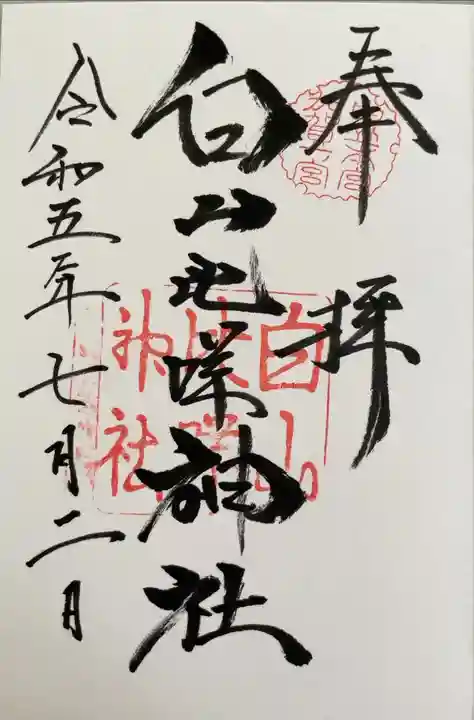 奉拝
白山比咩神社
令和五年七月二日
白山
比咩
神社